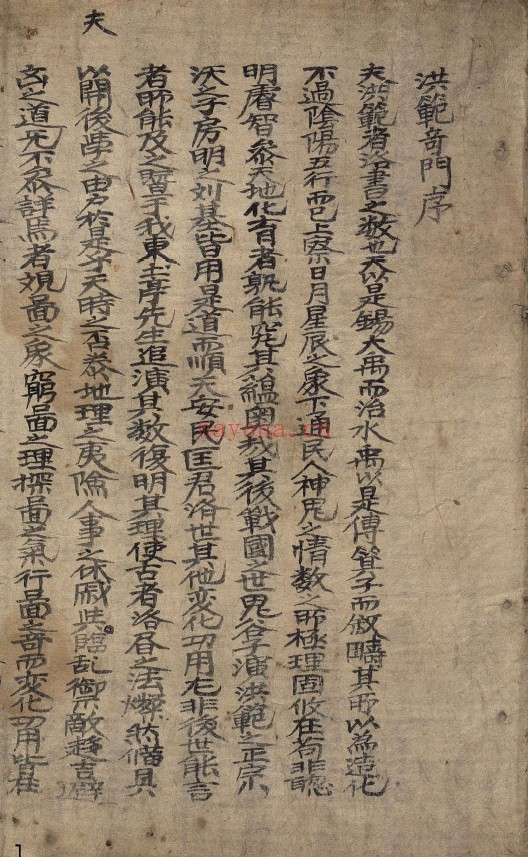 夫
洪範奇門序
夫洪範者洛書之数也天以是錫大禹而治水禹以是傳箕子而敘疇其所以為造化
不過陰陽五行而已上察日月星辰之象下通民人神鬼之情数之所極理固攸在苟非聡
明睿智叅天地化育者孰能究其緼奥哉其後戰國之世鬼谷子演洪範之正宗
漢之子房明之刘基皆用是道而順天安民匡君治世其他変化功用尤非後世能言
者所能及之暨于我東土亭先生追演其数復明其理使古者洛書之法燦然備具
以開後學之由户於是乎天時之否泰地理之夷險人事之休戚與臨乱御敵趍吉避
凶之道无不叅詳焉者覌啚之象窮啚之理探啚之氣行啚之奇而変化功用皆在
1
kayona.cn